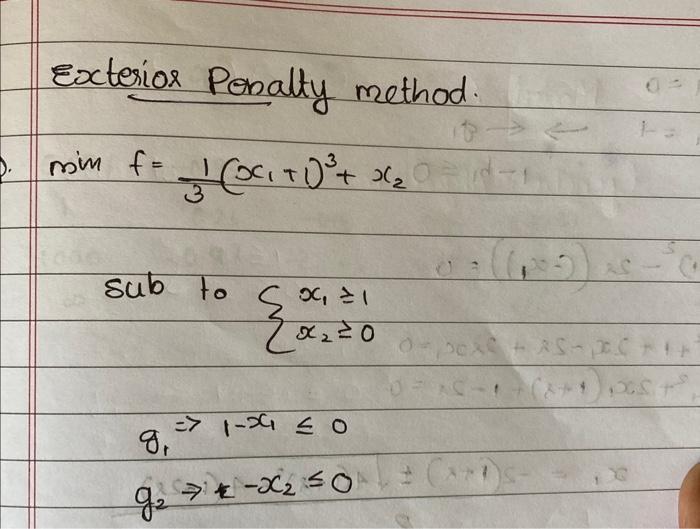 Exterior Penalty method.
min f = 1/3 (x₁ + 1)³ + x₂
sub to { x₁ ≥ 1
x₂ ≥ 0
g₁ ⇒ 1-x₁ ≤ 0
g₂ ⇒ -x₂ ≤ 0